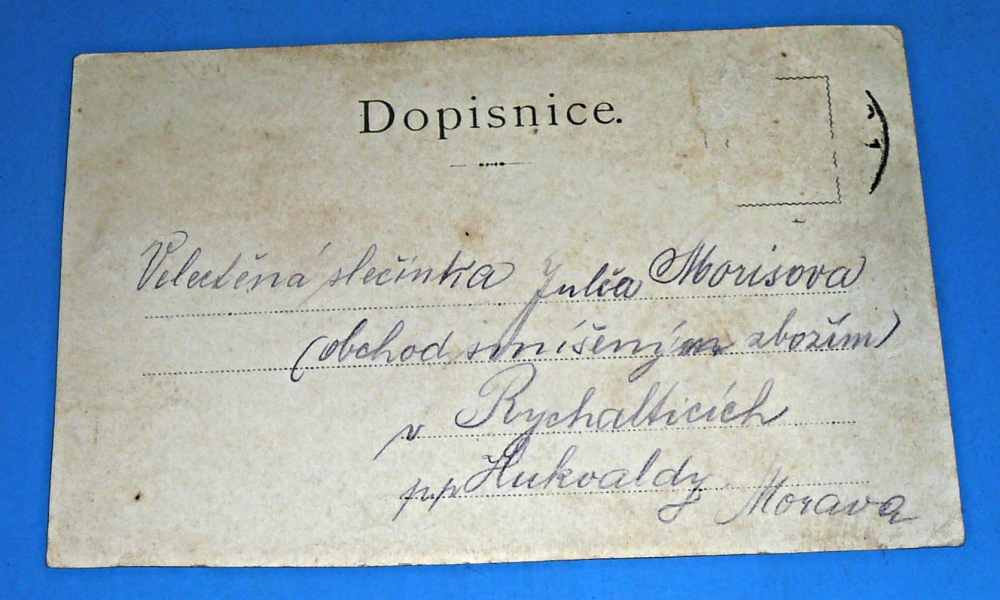 Dopisnice.
Velectěná slečinka Julča Morisova
(obchod smíšeným zbožím)
v Rychalticích
p.p. Hukvaldy. Morava